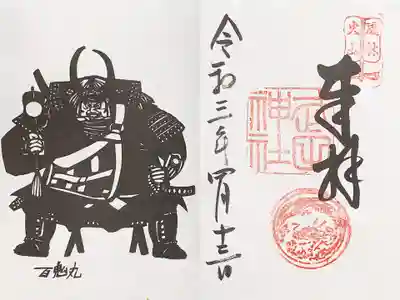 風林
火山
奉拝
武田
神社
令和三年四月十二日
百鬼丸